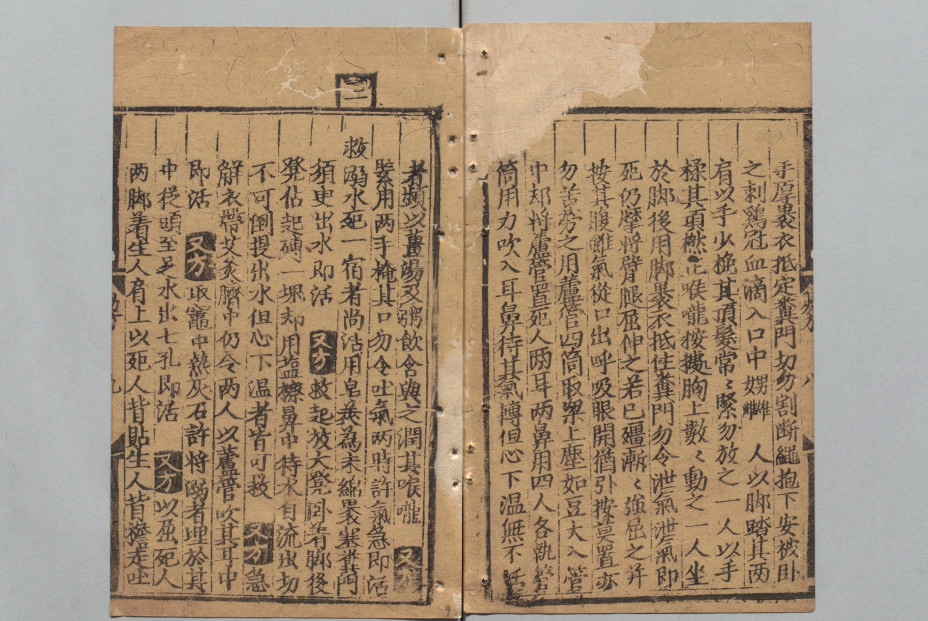 手厚裹衣抵定糞門切勿割断繩抱下安被卧
之刺鷄冠血滴入口中男雌女雄 人以脚踏其两
肩以手少挽其頂髮常〻緊勿放之一人以手
揉其項撚正喉嚨按擽胸上數〻動之一人坐
於脚後用脚裹衣抵住糞門勿令泄氣泄氣即
死仍摩将臂脹屈伸之若已殭漸〻強屈之并
按其腹雖氣從口出呼吸眼開猶引按莫置亦
勿苦劳之用蘆管四筒取梁上塵如豆大入管
中却将蘆管置死人两耳两鼻用四人各執管
筒用力吹入耳鼻待其氣轉但心下温無不活
者頻以薑湯及粥飲含與之潤其喉嚨 又方
緊用两手掩其口勿令吐氣两時許氣急即活
救溺水死一宿者尚活用皂莢為末綿裹塞糞門
須更出水即活 又方 救起放大凳卧着脚後
凳佔起磚一堁却用盐擦鼻中待水自流出切
不可倒提出水但心下温者皆可救 又方 急
解衣帶艾灸臍中仍令两人以蘆管吹其耳中
即活 又方 取竈中熱灰石許将溺者埋於其
中從頭至足水出七孔即活 又方 以屈死人
两脚着生人肩上以死人背貼生人背擔走吐
二
九
八